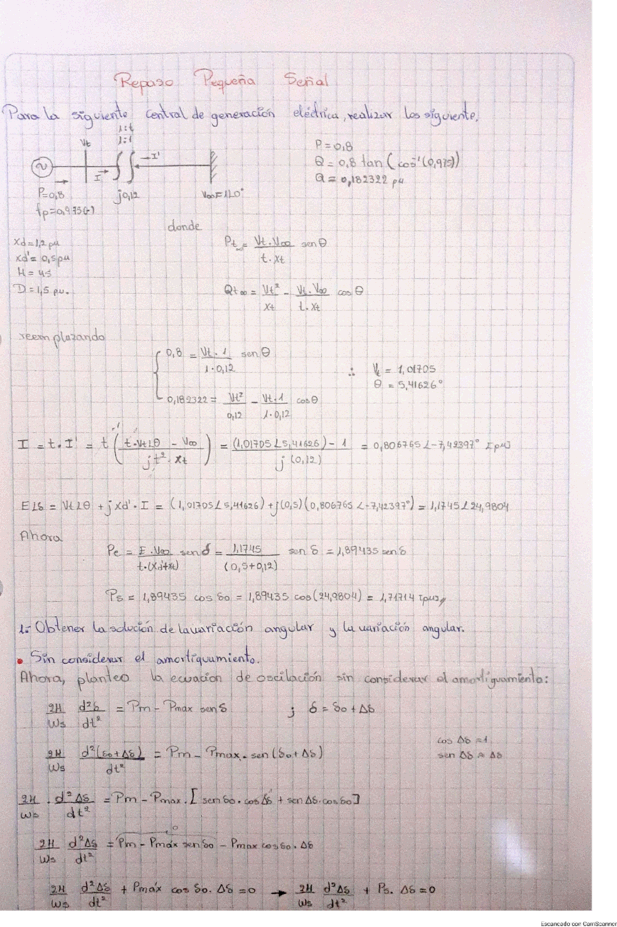 Repaso Pequeña Señal
Para la siguiente central de generación eléctrica, realizar los siguiente.
1:t
1:1
Vt
I
I'
P=0,8
fp=0,975(-)
j0,12
V∞=1∟0°
P=0,8
Q=0,8 tan(cos⁻¹(0,975))
Q=0,182322 pu
donde
Xd=1,2 pu
Xd'=0,5pu
H=4.5
D=1,5 pu.
Pt∞ = Vt·V∞ / t·Xt sen θ
Qt∞ = Vt² / Xt - Vt·V∞ / t·Xt cos θ
reemplazando
0,8 = Vt·1 / 1·0,12 sen θ
0,182322 = Vt² / 0,12 - Vt·1 / 1·0,12 cos θ
∴ Vt = 1,01705
θ = 5,41626°
I = t·I' = t ( t·Vt∟θ - V∞ / j t²·Xt ) = (1,01705∟5,41626) - 1 / j(0,12) = 0,806765∟-7,42397° [pu]
E∟δ = Vt∟θ + jXd'·I = (1,01705∟5,41626)+j(0,5)(0,806765∟-7,42397°) = 1,1745∟24,9804
Ahora
Pe = E·V∞ / t·(Xd'+Xt) sen δ = 1,1745 / (0,5+0,12) sen δ = 1,89435 sen δ
Ps = 1,89435 cos δo = 1,89435 cos(24,9804) = 1,71714 [pu]
1.- Obtener la solución de la variación angular y la variación angular.
• Sin considerar el amortiguamiento.
Ahora, planteo la ecuación de oscilación sin considerar el amortiguamiento:
2H/ωs d²δ/dt² = Pm - Pmax senδ ; δ = δo + Δδ
2H/ωs d²(δo+Δδ)/dt² = Pm - Pmax·sen(δo+Δδ)
cos Δδ = 1
sen Δδ ≈ Δδ
2H/ωs · d²Δδ/dt² = Pm - Pmax·[senδo·cosΔδ + senΔδ·cosδo]
2H/ωs d²Δδ/dt² = Pm - Pmáx sen δo - Pmax cosδo·Δδ
0
2H/ωs d²Δδ/dt² + Pmáx cos δo·Δδ=0 → 2H/ωs d²Δδ/dt² + Ps·Δδ=0
Escaneado con CamScanner